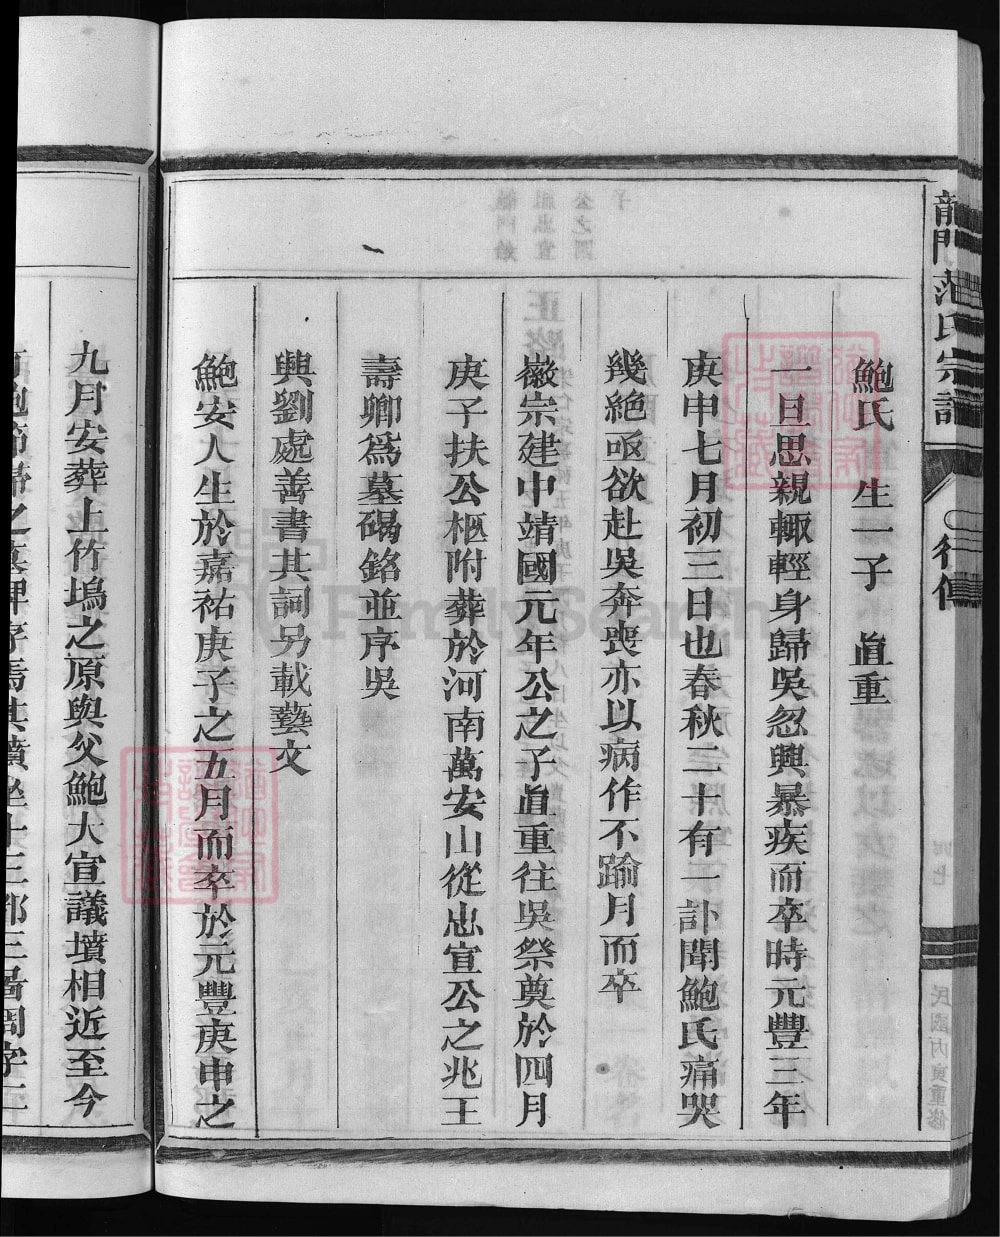 龍門范氏宗譜
行傳
民國丙寅重修
鮑氏 生一子 直重
一旦思親輙輕身歸吳忽興暴疾而卒時元豐三年
庚申七月初三日也春秋二十有一訃聞鮑氏痛哭
幾絶亟欲赴吳奔喪亦以病作不踰月而卒
徽宗建中靖國元年公之子直重往吳祭奠於四月
庚子扶公柩附葬於河南萬安山從忠宣公之兆王
壽卿爲墓碣銘並序吳
興劉處善書其詞另載藝文
鮑安人生於嘉祐庚子之五月而卒於元豐庚申之
九月安葬上竹塢之原與父鮑大宣議墳相近至今
FamilySearch